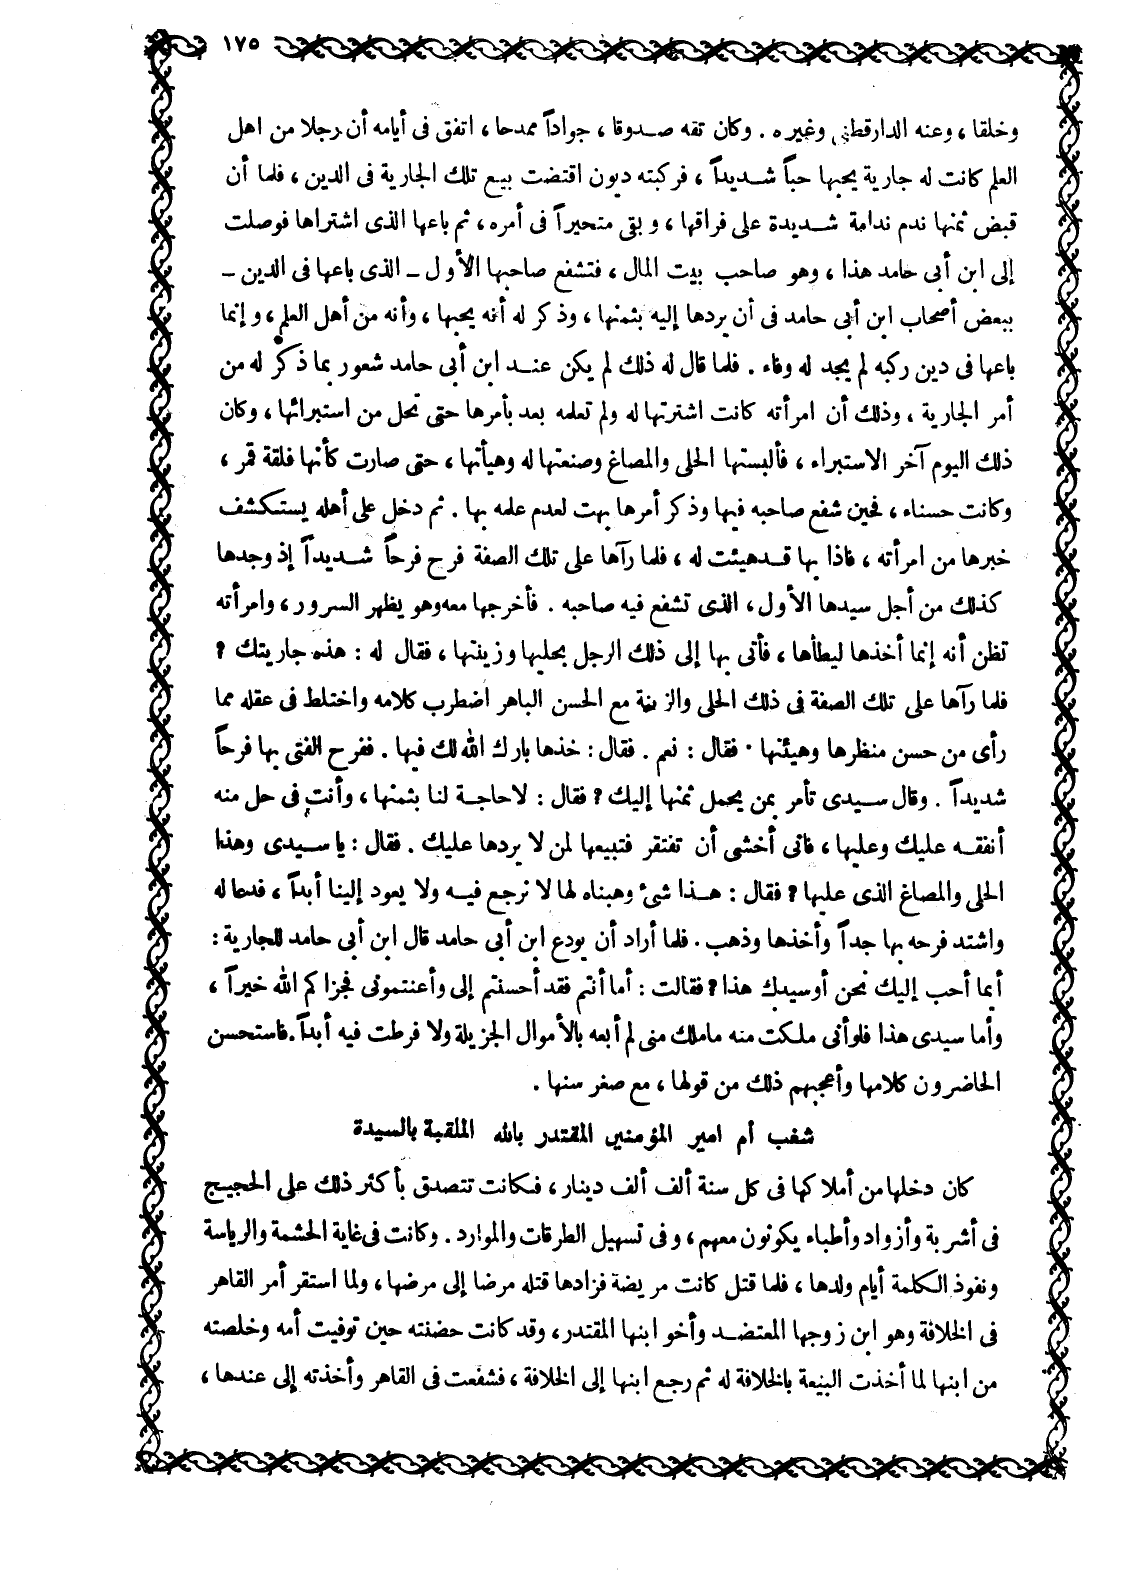 ١٧٥
وخلقا ، وعنه الدارقطني وغيره . وكان ثقه صدوقا ، جواداً ممدحا ، اتفق فى أيامه أن رجلا من اهل
العلم كانت له جارية يحبها حباً شديداً ، فركبته ديون اقتضت بيع تلك الجارية فى الدين ، فلما أن
قبض ثمنها ندم ندامة شديدة على فراقها ، وبقى متحيراً فى أمره ، ثم باعها الذى اشتراها فوصلت
إلى ابن أبى حامد هذا ، وهو صاحب بيت المال ، فتشفع صاحبها الأول ــ الذى باعها فى الدين ــ
ببعض أصحاب ابن أبى حامد فى أن يردها إليه بثمنها ، وذكر له أنه يحبها ، وأنه من أهل العلم ، وإنما
باعها فى دين ركبه لم يجد له وفاء . فلما قال له ذلك لم يكن عند ابن أبى حامد شعور بما ذكر له من
أمر الجارية ، وذلك أن امرأته كانت اشترتها له ولم تعلمه بعد بأمرها حتى تحل من استبرائها ، وكان
ذلك اليوم آخر الاستبراء ، فألبستها الحلى والمصاغ وصنعتها له وهيأتها ، حتى صارت كأنها فلقة قمر ،
وكانت حسناء ، فحين شفع صاحبه فيها وذكر أمرها بهت لعدم علمه بها . ثم دخل على أهله يستكشف
خبرها من امرأته ، فاذا بها قد هيئت له ، فلما رآها على تلك الصفة فرح فرحاً شديداً إذ وجدها
كذلك من أجل سيدها الأول ، الذى تشفع فيه صاحبه . فأخرجها معه وهو يظهر السرور ، وامرأته
تظن أنه إنما أخذها ليطأها ، فأتى بها إلى ذلك الرجل بحليها وزينتها ، فقال له : هذه جاريتك ؟
فلما رآها على تلك الصفة فى ذلك الحلى والزينة مع الحسن الباهر اضطرب كلامه واختلط فى عقله مما
رأى من حسن منظرها وهيئتها . فقال : نعم . فقال : خذها بارك الله لك فيها . ففرح الفتى بها فرحاً
شديداً . وقال سيدى تأمر بمن يحمل ثمنها إليك ؟ فقال : لاحاجة لنا بثمنها ، وأنت فى حل منه
أنفقه عليك وعليها ، فانى أخشى أن تفتقر فتبيعها لمن لا يردها عليك . فقال : يا سيدى وهذا
الحلى والمصاغ الذى عليها ؟ فقال : هذا شىء وهبناه لها لا نرجع فيه ولا يعود إلينا أبداً ، فدعا له
واشتد فرحه بها جداً وأخذها وذهب . فلما أراد أن يودع ابن أبى حامد قال ابن أبى حامد للجارية :
أيما أحب إليك نحن أو سيدك هذا ؟ فقالت : أما أنتم فقد أحسنتم إلى وأعنتمونى فجزاكم الله خيراً ،
وأما سيدى هذا فلو أنى ملكت منه ما ملك منى لم أبعه بالأموال الجزيلة ولا فرطت فيه أبداً . فاستحسن
الحاضرون كلامها وأعجبهم ذلك من قولها ، مع صغر سنها .
شغب أم امير المؤمنين المقتدر بالله الملقبة بالسيدة
كان دخلها من أملاكها فى كل سنة ألف ألف دينار ، فكانت تتصدق بأكثر ذلك على الحجيج
فى أشربة وأزواد وأطباء يكونون معهم ، وفى تسهيل الطرقات والموارد . وكانت فى غاية الحشمة والرياسة
ونفوذ الكلمة أيام ولدها ، فلما قتل كانت مريضة فزادها قتله مرضا إلى مرضها ، ولما استقر أمر القاهر
فى الخلافة وهو ابن زوجها المعتضد وأخو ابنها المقتدر ، وقد كانت حضنته حين توفيت أمه وخلصته
من ابنها لما أخذت البيعة بالخلافة له ثم رجع ابنها إلى الخلافة ، فشفعت فى القاهر وأخذته إلى عندها ،